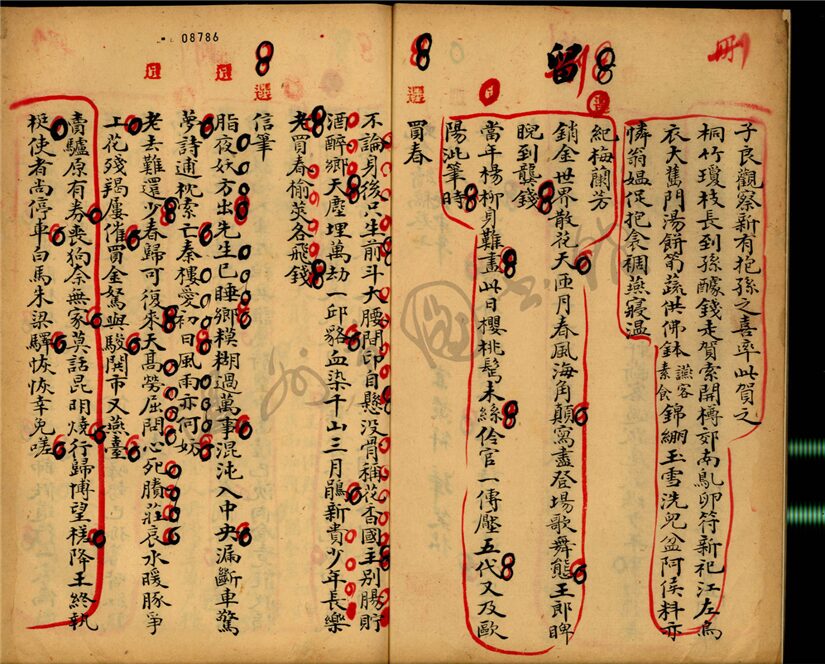 子良觀察新有抱孫之喜率此賀之
桐竹瓊枝長到孫醵錢走賀索開樽郊南鳦卵符新祀江左烏
衣大舊門湯餅筍蔬供佛鉢讌客素食錦綳玉雪洗兒盆阿侯料亦
憐翁媼促抱衾裯燕寢溫
紀梅蘭芳
銷金世界散花天匝月春風海角顛寫盡登場歌舞態王郎睥
睨到龔錢
當年楊柳身難畫此日櫻桃髩未絲伶官一傳壓五代又及歐
陽泚筆時
留
冊
買春
不論身後只生前斗大腰間印自懸沒骨稱花香國主別腸貯
酒醉鄉天塵埋萬劫一邱貉血染千山三月鵑新貴少年長樂
老買春榆莢各飛錢
信筆
脂夜妖方出先生已睡鄉模糊過萬事混沌入中央漏斷車驚
夢詩逋枕索亡秦樓愛初日風雨亦何妨
老去難還少春歸可復來天高勞屈問心死牘莊哀水暖豚爭
上花殘羯屢催買金駑與駿閧市又燕臺
賣驢原有券喪狗奈無家莫話昆明燒行歸博望槎降王終執
梃使者尚停車白馬朱梁驛恢恢幸免嗟
08786
選
選